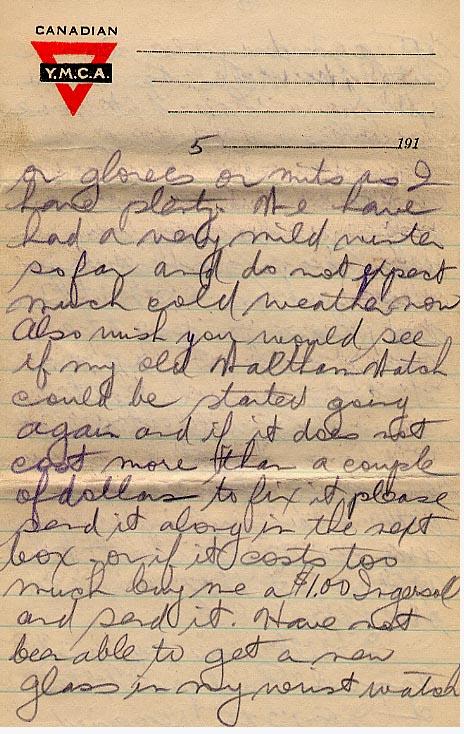 CANADIAN
Y.M.C.A.
5 191
or gloves or mits as I
have plenty. We have
had a very mild winter
so far and do not expect
much cold weather now
Also wish you would see
if my old Waltham Watch
could be started going
again and if it does not
cost more than a couple
of dollars to fix it please
send it along in the next
box - or if it costs too
much buy me a $1.00 Ingersoll
and send it. Have not
been able to get a new
glass in my wrist watch